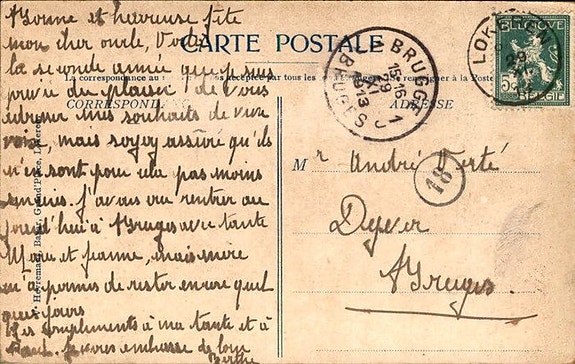 Bonne et heureuse fête
mon cher oncle, Voilà
la seconde année que je suis
privée du plaisir de vous
mes souhaits de vive
voix, mais soyez assuré qu'ils
n'en sont pour cela pas moins
sincères. J'avais cru rentrer au
jourd'hui à Bruges avec tante
Marie et Jeanne, mais mère
m'a permis de rester encore quel
ques jours
Mes compliments à ma tante et à
Paul. Je vous embrasse de loin
Berthe
CARTE POSTALE
La correspondance au
acceptée par tous les
se renseigner à la Poste
CORRESPOND
ADRESSE
BRUGGE 1
15-16
29
XI
1913
BRUGES 1
BELGIQUE
5
BELGIË
LOK
29
Mr André Verté
18
Dyver
Bruges
Heyrman, Bazar, Grand'Place, Lokeren